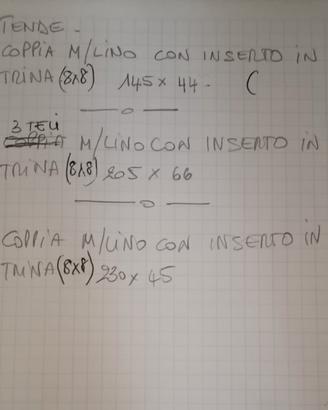 TENDE.
COPPIA M/LINO CON INSERTO IN
TRINA (8x8) 145 x 44. (
3 TELI
COPPIA M/LINO CON INSERTO IN
TRINA (8x8) 205 x 66
COPPIA M/LINO CON INSERTO IN
TRINA (8x8) 230 x 45